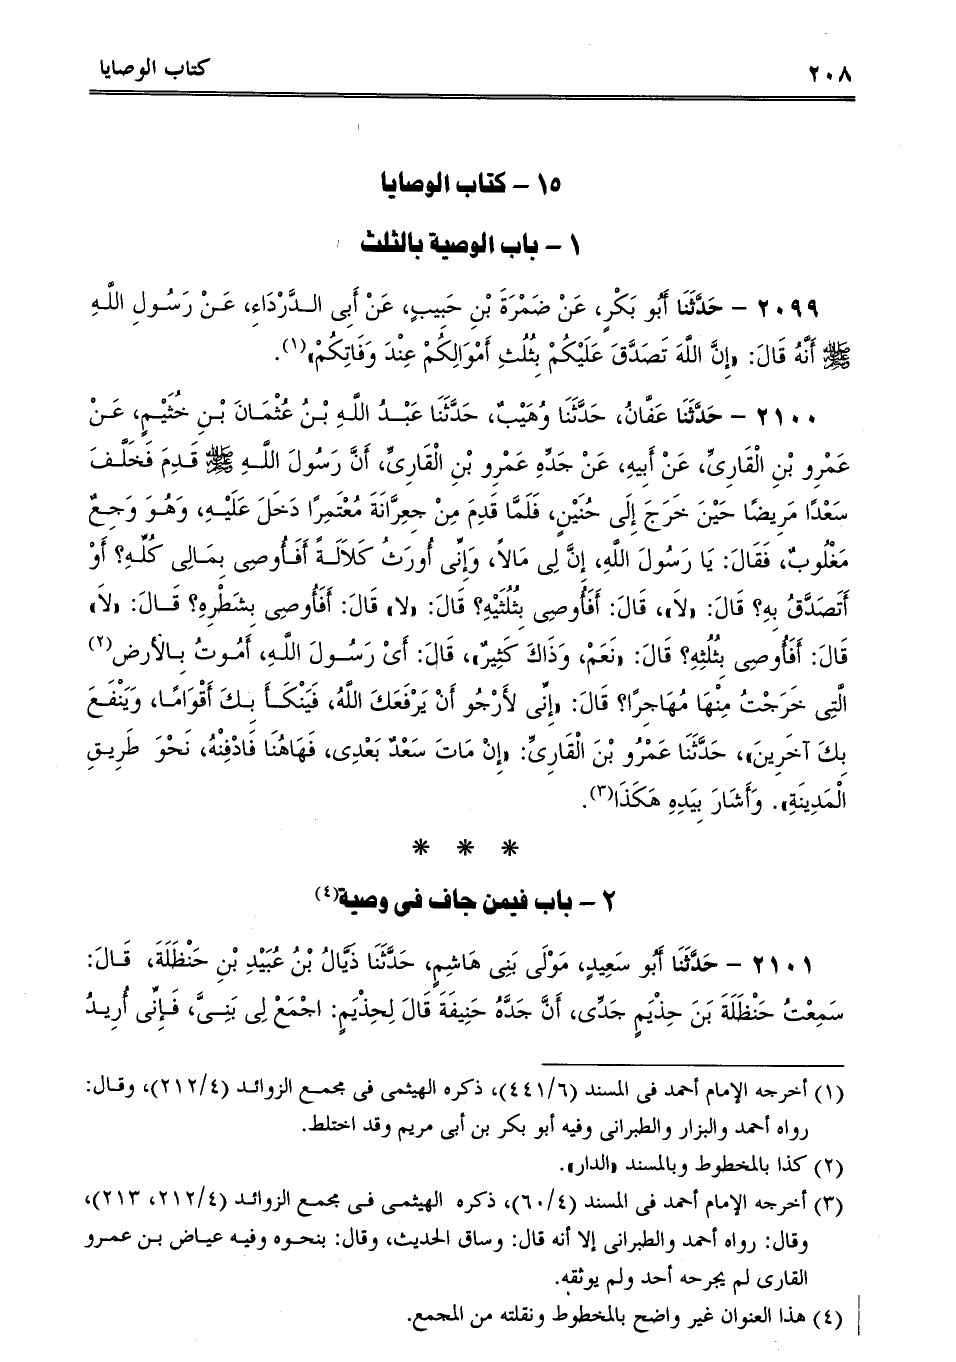 ٢٠٨ كتاب الوصايا
١٥ - كتاب الوصايا
١ - باب الوصية بالثلث
٢٠٩٩ - حَدَّثَنَا أَبُو بَكْرٍ، عَنْ ضَمْرَةَ بْنِ حَبِيبٍ، عَنْ أَبِى الـدَّرْدَاءِ، عَـنْ رَسُـولِ اللَّهِ
ﷺ أَنَّهُ قَالَ: «إِنَّ اللَّهَ تَصَدَّقَ عَلَيْكُمْ بِثُلُثِ أَمْوَالِكُمْ عِنْدَ وَفَاتِكُمْ»(١).
٢١٠٠ - حَدَّثَنَا عَفَّانُ، حَدَّثَنَا وُهَيْبٌ، حَدَّثَنَا عَبْـدُ اللَّهِ بْـنُ عُثْمَـانَ بْـنِ خُثَيْـمٍ، عَـنْ
عَمْرِو بْنِ الْقَارِىِّ، عَنْ أَبِيهِ، عَنْ جَدِّهِ عَمْرِو بْنِ الْقَارِىِّ، أَنَّ رَسُولَ اللَّـهِ ﷺ قَـدِمَ فَخَلَّـفَ
سَعْدًا مَرِيضًا حَيْنَ خَرَجَ إِلَى حُنَيْنٍ، فَلَمَّا قَدِمَ مِنْ جِعِرَّانَةَ مُعْتَمِرًا دَخَلَ عَلَيْـهِ، وَهُـوَ وَجِـعٌ
مَغْلُوبٌ، فَقَالَ: يَا رَسُولَ اللَّهِ، إِنَّ لِى مَالاً، وَإِنِّى أُورَثُ كَلاَلَـةً أَفَـأُوصِى بِمَـالِى كُلِّـهِ؟ أَوْ
أَتَصَدَّقُ بِهِ؟ قَالَ: «لاَ»، قَالَ: أَفَأُوصِى بِثُلُثَيْهِ؟ قَالَ: «لا» قَالَ: أَفَأُوصِى بِشَطْرِهِ؟ قَـالَ: «لاَ»
قَالَ: أَفَأُوصِى بِثُلُثِهِ؟ قَالَ: «نَعَمْ، وَذَاكَ كَثِيرٌ»، قَالَ: أَىْ رَسُـولَ اللَّـهِ، أَمُـوتُ بِـالأَرضِ(٢)
الَّتِى خَرَجْتُ مِنْهَا مُهَاجِرًا؟ قَالَ: «إِنِّى لأَرْجُو أَنْ يَرْفَعَكَ اللَّهُ، فَيَنْكَـأَ بِـكَ أَقْوَامًـا، وَيَنْفَـعَ
بِكَ آخَرِينَ»، حَدَّثَنَا عَمْرُو بْنَ الْقَارِىِّ: «إِنْ مَاتَ سَعْدٌ بَعْدِى، فَهَاهُنَا فَادْفِنْهُ، نَحْوَ طَرِيقِ
الْمَدِينَةِ». وَأَشَارَ بِيَدِهِ هَكَذَا(٣).
* * *
٢ - باب فيمن جاف فى وصية(٤)
٢١٠١ - حَدَّثَنَا أَبُو سَعِيدٍ، مَوْلَى بَنِى هَاشِمٍ، حَدَّثَنَا ذَيَّالُ بْنُ عُبَيْدِ بْنِ حَنْظَلَةَ، قَـالَ:
سَمِعْتُ حَنْظَلَةَ بَنَ حِذْيَمٍ جَدِّى، أَنَّ جَدَّهُ حَنِيفَةَ قَالَ لِحِذْيَمٍ: اجْمَعْ لِى بَنِـىَّ، فَـإِنِّى أُرِيـدُ
(١) أخرجه الإمام أحمد فى المسند (٤٤١/٦)، ذكره الهيثمى فى مجمـع الزوائـد (٢١٢/٤)، وقـال:
رواه أحمد والبزار والطبرانى وفيه أبو بكر بن أبى مريم وقد اختلط.
(٢) كذا بالمخطوط وبالمسند «الدار».
(٣) أخرجه الإمام أحمد فى المسند (٦٠/٤)، ذكره الهيثمـى فـى مجمـع الزوائـد (٢١٢/٤، ٢١٣)،
وقال: رواه أحمد والطبرانى إلا أنه قال: وساق الحديث، وقال: بنحـوه وفيـه عيـاض بـن عمـرو
القارى لم يجرحه أحد ولم يوثقه.
(٤) هذا العنوان غير واضح بالمخطوط ونقلته من المجمع.